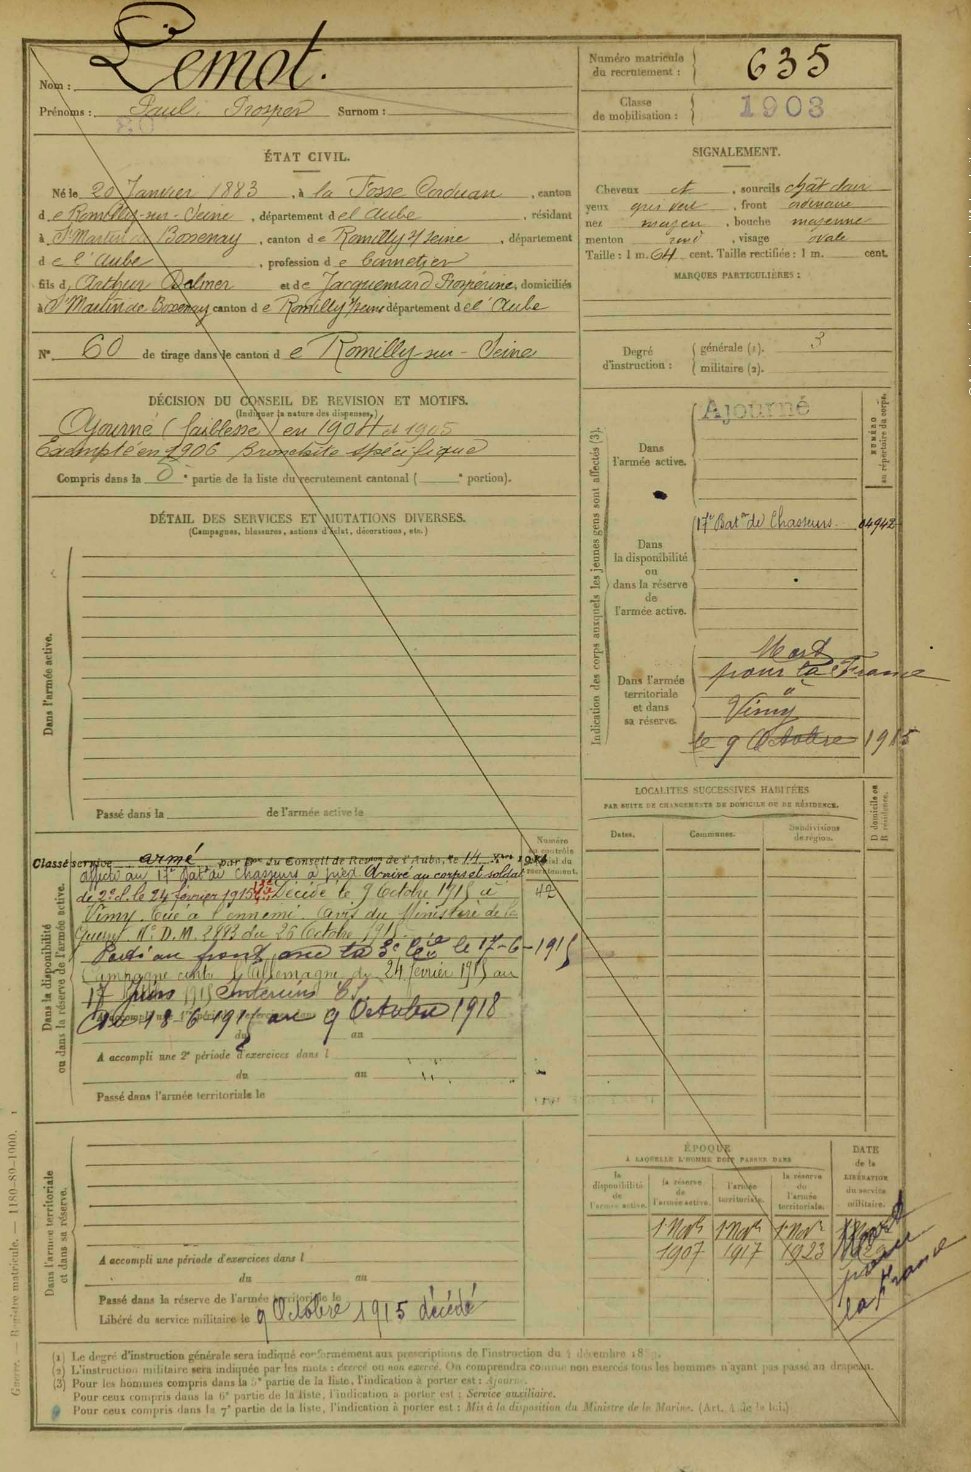 Nom : Lemot.
Prénoms : Paul. Prosper Surnom :
Numéro matricule du recrutement : 635
Classe de mobilisation : 1903
ÉTAT CIVIL.
Né le 20 Janvier 1883, à la Fosse Corduan, canton
de Romilly-sur-Seine, département de l'Aube, résidant
à St Martin de Bossenay, canton de Romilly s/ Seine, département
de l'Aube, profession de bonnetier
fils d'Arthur et de Jacquemard Prospérine, domiciliés
à St Martin de Bossenay canton de Romilly s/ Seine département de l'Aube
N° 60 de tirage dans le canton de Romilly sur-Seine
SIGNALEMENT.
Cheveux ct, sourcils chât clair
yeux gris vert, front ordinaire
nez moyen, bouche moyenne
menton rond, visage ovale
Taille : 1 m. 64 cent. Taille rectifiée : 1 m. cent.
MARQUES PARTICULIÈRES :
Degré d'instruction : générale (1). 3
militaire (2).
DÉCISION DU CONSEIL DE REVISION ET MOTIFS.
(Indiquer la nature des dispenses.)
Ajourné (faiblesse) en 1904 et 1905
Exempté en 1906 bronchite spécifique
Compris dans la 5e partie de la liste du recrutement cantonal ( e portion).
DÉTAIL DES SERVICES ET MUTATIONS DIVERSES.
(Campagnes, blessures, actions d'éclat, décorations, etc.)
Dans l'armée active.
Passé dans la de l'armée active le
Indication des corps auxquels les jeunes gens sont affectés (3).
NUMÉRO au répertoire du corps.
Dans l'armée active.
Ajourné
Dans la disponibilité ou dans la réserve de l'armée active.
17e Baton de Chasseurs. 04942
Dans l'armée territoriale et dans sa réserve.
Mort
pour la France
à
Vimy
le 9 Octobre 1915
LOCALITÉS SUCCESSIVES HABITÉES
PAR SUITE DE CHANGEMENTS DE DOMICILE OU DE RÉSIDENCE.
Dates. Communes. Subdivisions de région. D domicile ou R résidence.
Dans la disponibilité ou dans la réserve de l'armée active.
Classé service armé par Don du Conseil de Revon de l'Aube, le 14 Xbre 1914
affecté au 17e Baton de Chasseurs à pied Arrivé au corps et soldat
de 2e cl. le 24 février 1915 Décédé le 9 Octobre 1915 à
Vimy. Tué à l'ennemi. Avis du Ministère de la
Guerre N° D.M. 2883 du 26 Octobre 1915.
42
Parti au front avec la 3e Cie le 17-6-1915
Campagne contre l'Allemagne du 24 février 1915 au
17 Juin 1915 intérieur C.S.
Du 18 6 1915 au 9 Octobre 1918
du au
A accompli une 2e période d'exercices dans l
du au
Passé dans l'armée territoriale le
Dans l'armée territoriale et dans sa réserve.
A accompli une période d'exercices dans l
du au
Passé dans la réserve de l'armée territoriale le
Libéré du service militaire le 9 Octobre 1915 décédé
ÉPOQUE
A LAQUELLE L'HOMME DOIT PASSER DANS
la disponibilité de l'armée active. la réserve de l'armée active. l'armée territoriale. la réserve de l'armée territoriale.
DATE de la LIBÉRATION du service militaire.
1 Nov 1907 1 Nov 1917 1 Nov 1923
Mort pour la France
(1) Le degré d'instruction générale sera indiqué conformément aux prescriptions de l'instruction du 4 décembre 18
(2) L'instruction militaire sera indiquée par les mots : exercé ou non exercé. On comprendra comme non exercés tous les hommes n'ayant pas passé au drapeau.
(3) Pour les hommes compris dans la 5e partie de la liste, l'indication à porter est : Ajourné.
Pour ceux compris dans la 6e partie de la liste, l'indication à porter est : Service auxiliaire.
Pour ceux compris dans la 7e partie de la liste, l'indication à porter est : Mis à la disposition du Ministre de la Marine. (Art. 4 de la loi.)
Guerre. — Registre matricule. — 1180-89-1000.